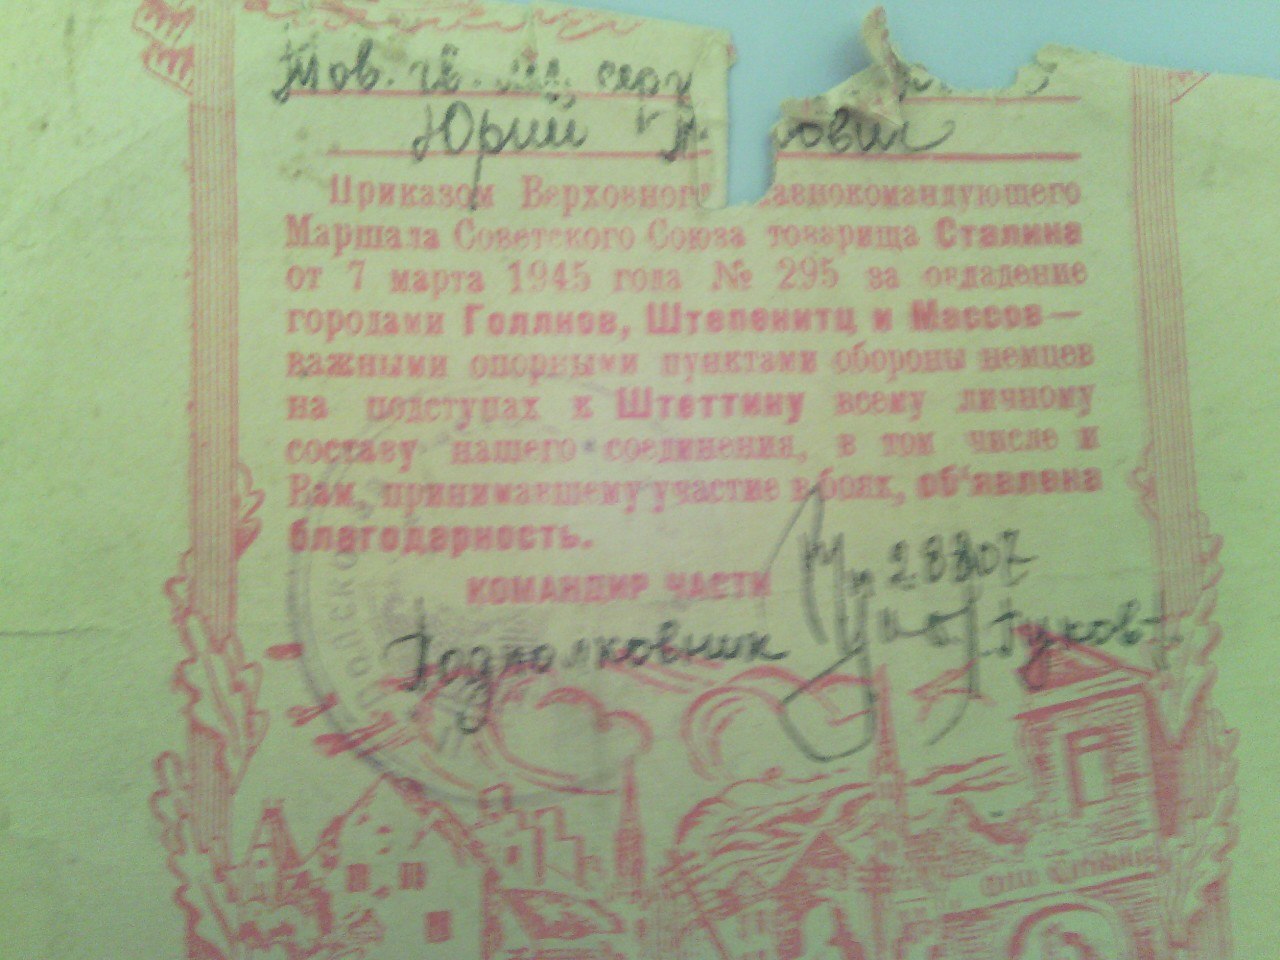 Тов. гв. мл. серж
Юрий
Приказом Верховного лавнокомандующего
Маршала Советского Союза товарища Сталина
от 7 марта 1945 года № 295 за овладение
городами Голлнов, Штепенитц и Массов—
важными опорными пунктами обороны немцев
на подступах к Штеттину всему личному
составу нашего соединения, в том числе и
Вам, принимавшему участие в боях, об‘явлена
благодарность.
КОМАНДИР ЧАСТИ 28807
Подполковник